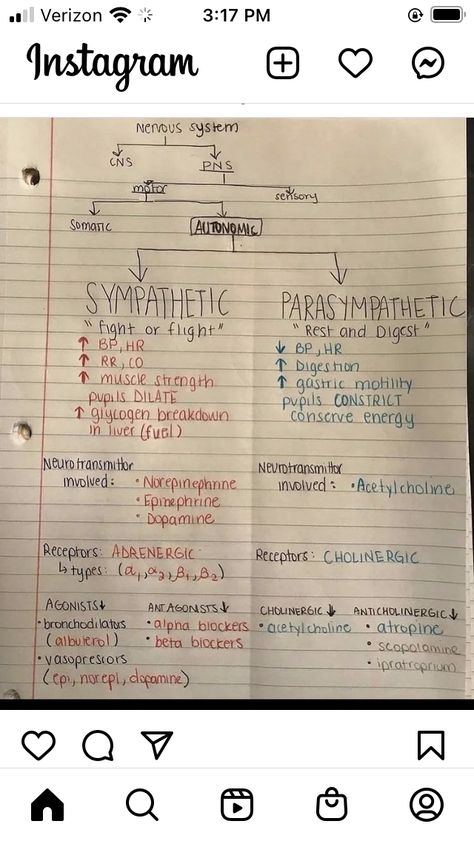 Verizon 3:17 PM
Instagram
Nervous system
CNS PNS
motor sensory
Somatic AUTONOMIC
SYMPATHETIC PARASYMPATHETIC
"fight or flight" "Rest and Digest"
↑ BP, HR ↓ BP, HR
↑ RR, CO ↑ Digestion
↑ muscle strength ↑ gastric motility
pupils DILATE pupils CONSTRICT
↑ glycogen breakdown conserve energy
in liver (fuel)
Neurotransmittor Neurotransmittor
involved: • Norepinephrine involved: • Acetylcholine
• Epinephrine
• Dopamine
Receptors: ADRENERGIC Receptors: CHOLINERGIC
↳ types: (α1, α2, β1, β2)
AGONISTS↓ ANTAGONISTS↓ CHOLINERGIC↓ ANTICHOLINERGIC↓
• bronchodilators • alpha blockers • acetylcholine • atropine
(albuterol) • beta blockers • scopolamine
• vasopressors • ipratroprium
(epi, norepi, dopamine)